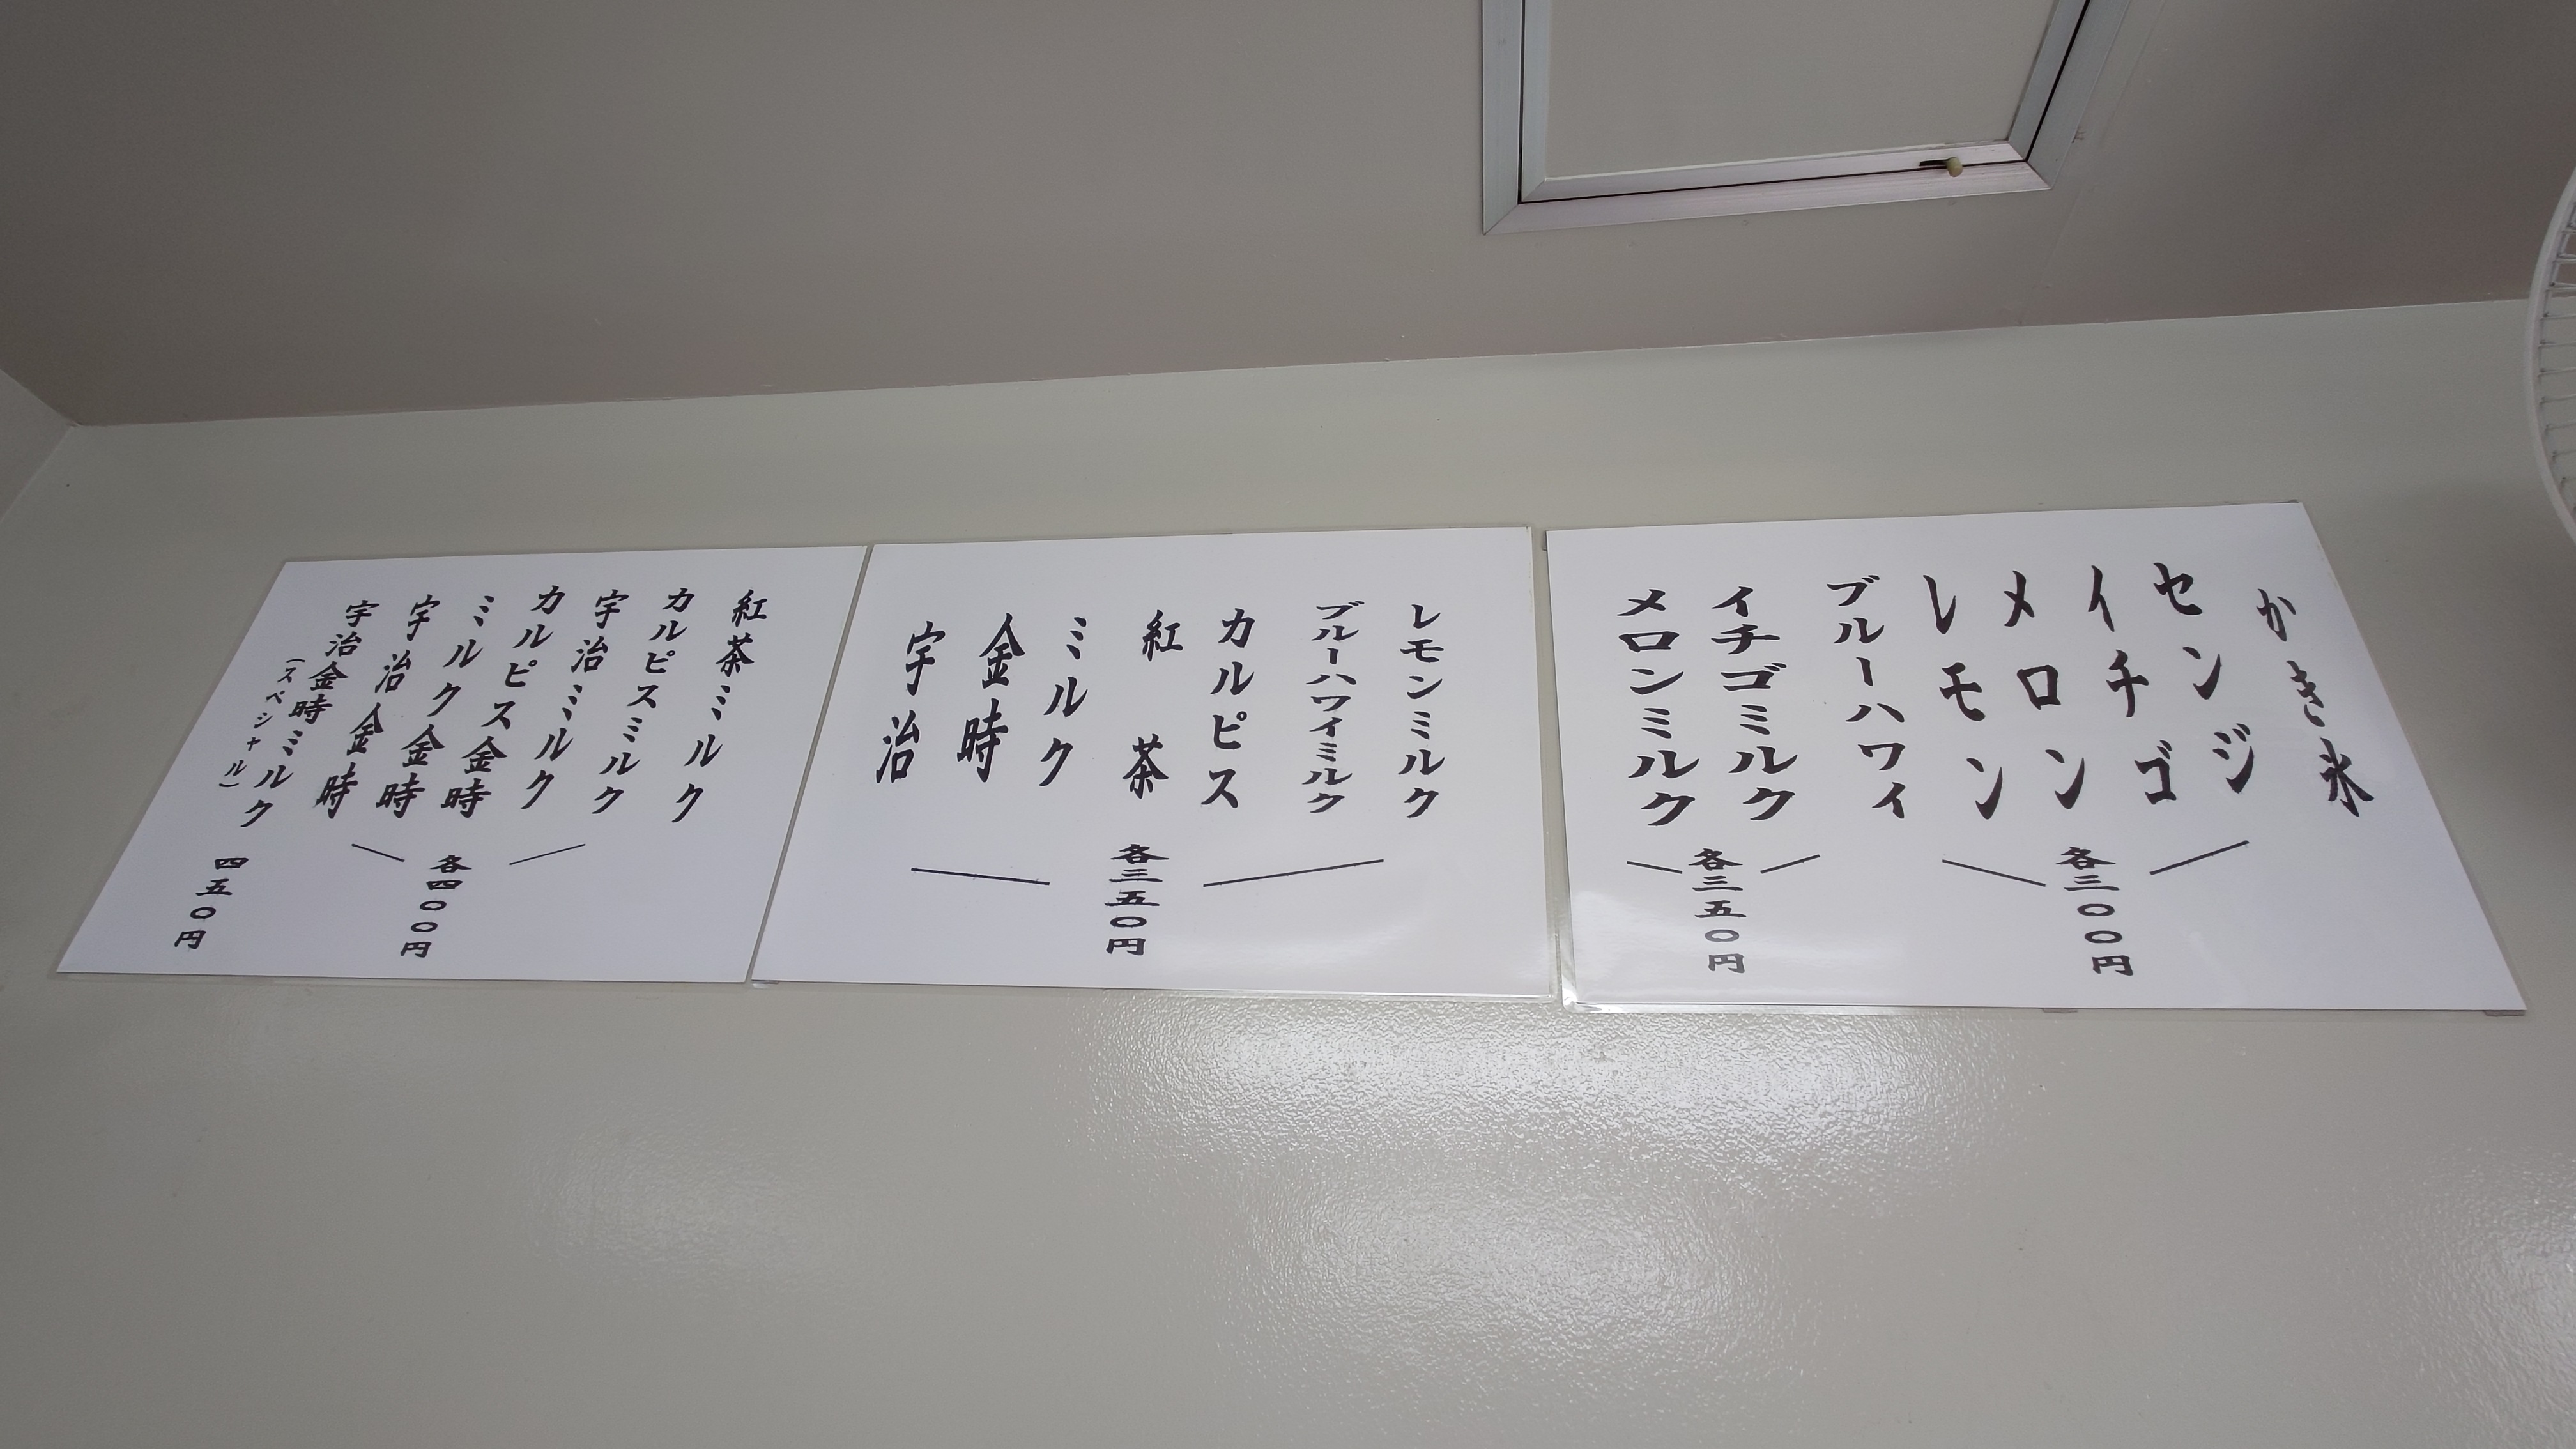 かき氷
センジ
イチゴ
メロン
レモン
ブルーハワイ
各三〇〇円
イチゴミルク
メロンミルク
各三五〇円
レモンミルク
ブルーハワイミルク
カルピス
紅茶
ミルク
金時
宇治
各三五〇円
紅茶ミルク
カルピスミルク
宇治ミルク
カルピス金時
ミルク金時
宇治金時
各四〇〇円
宇治金時ミルク
(スペシャル)
四五〇円